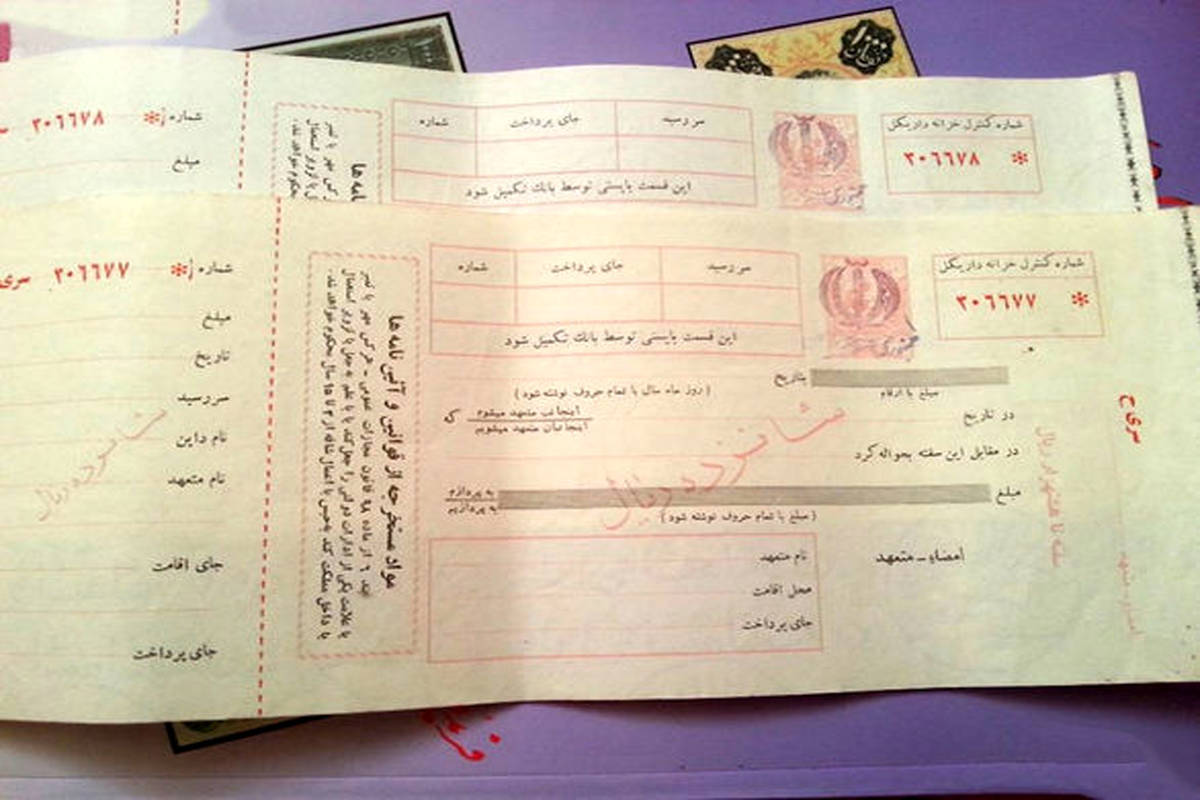 شماره ۳۰٦٦٧٨
مبلغ
شماره
جای پرداخت
سررسید
این قسمت بایستی توسط بانك تكمیل شود
شماره كنترل خزانه داری كل
۳۰٦٦٧٨
شماره ۳۰٦٦٧٧ سری
مبلغ
تاریخ
سررسید
نام داین
نام متعهد
جای اقامت
جای پرداخت
شانزده ریال
مواد مستخرجه از قوانین و آئین نامه ها
شماره
جای پرداخت
سررسید
این قسمت بایستی توسط بانك تكمیل شود
جمهوری
شماره كنترل خزانه داری كل
۳۰٦٦٧٧
مبلغ با ارقام
بتاریخ
( روز ماه سال با تمام حروف نوشته شود )
در تاریخ
اینجانب متعهد میشوم
اینجانبان متعهد میشویم
که
در مقابل این سفته بحواله کرد
مبلغ
به پردازم
به پردازیم
( مبلغ با تمام حروف نوشته شود )
شانزده ریال
نام متعهد
محل اقامت
جای پرداخت
امضاء ـ متعهد
سری ح